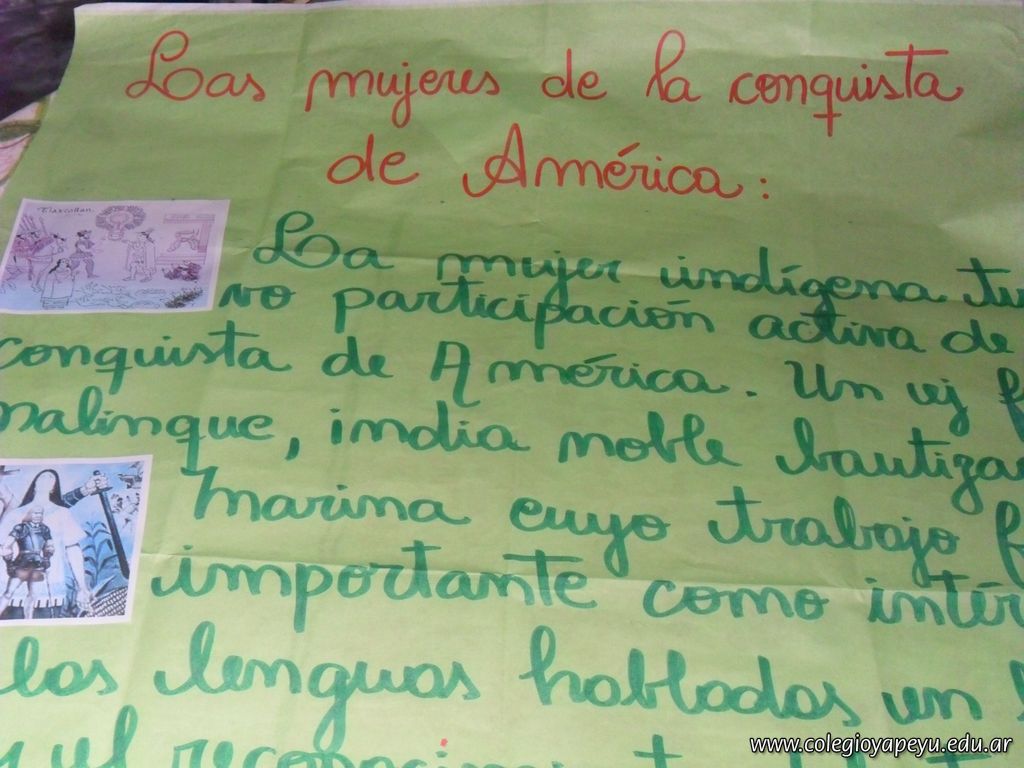 Las mujeres de la conquista
de América:
Tlaxcallan.
La mujer indígena tu
vo participación activa de
conquista de América. Un ej f
malinque, india noble bautiza
Marina cuyo trabajo f
importante como intér
las lenguas habladas en l
y el
www.colegioyapeyu.edu.ar